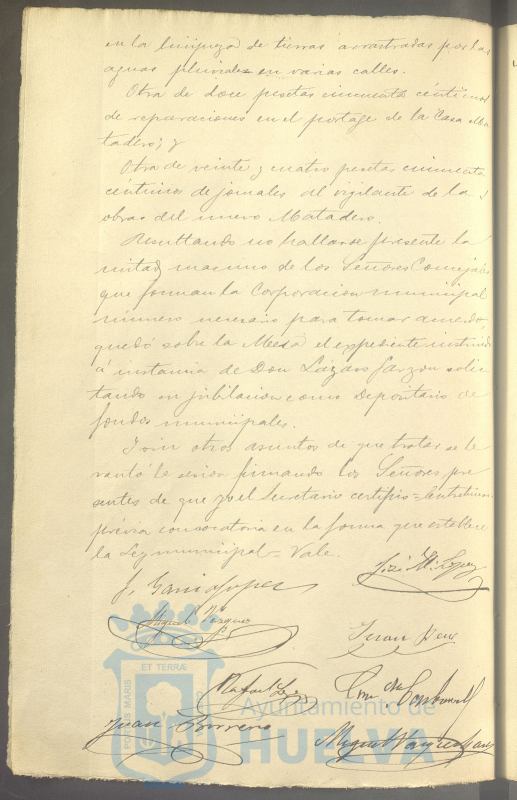 en la limpieza de tierras arrastradas por las
aguas pluviales en varias calles.
Otra de doce pesetas cincuenta céntimos
de reparaciones en el portage de la Casa Ma-
tadero; y
Otra de veinte y cuatro pesetas cincuenta
céntimos de jornales al vigilante de las
obras del nuevo Matadero.
Resultando no hallarse presente la
mitad mas uno de los Señores Concejales
que forman la Corporacion municipal
número necesario para tomar acuerdo,
quedó sobre la Mesa el expediente instruido
á instancia de Don Lázaro Garzon solici
tando su jubilacion como Depositario de
fondos municipales.
Y sin otros asuntos de que tratar se le
vantó la sesion firmando los Señores pre
sentes de que yo el Secretario certifico = Entrelineas =
prévia convocatoria en la forma que establece
la Ley municipal = Vale.
José Mª Lopez
J. Garcia Lopez
Miguel Vazquez
Juan
Rafael
Juan Borrero
Miguel Vazquez
ET TERRÆ
PORTUS MARIS
Ayuntamiento de
HUELVA